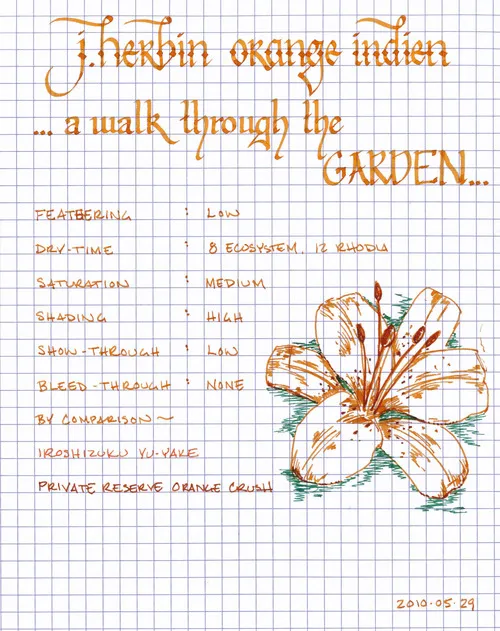 j.herbin orange indien
... a walk through the
GARDEN...
FEATHERING : LOW
DRY-TIME : 8 ECOSYSTEM, 12 RHODIA
SATURATION : MEDIUM
SHADING : HIGH
SHOW-THROUGH : LOW
BLEED-THROUGH : NONE
BY COMPARISON ~
IROSHIZUKU YU-YAKE
PRIVATE RESERVE ORANGE CRUSH
2010.05.29